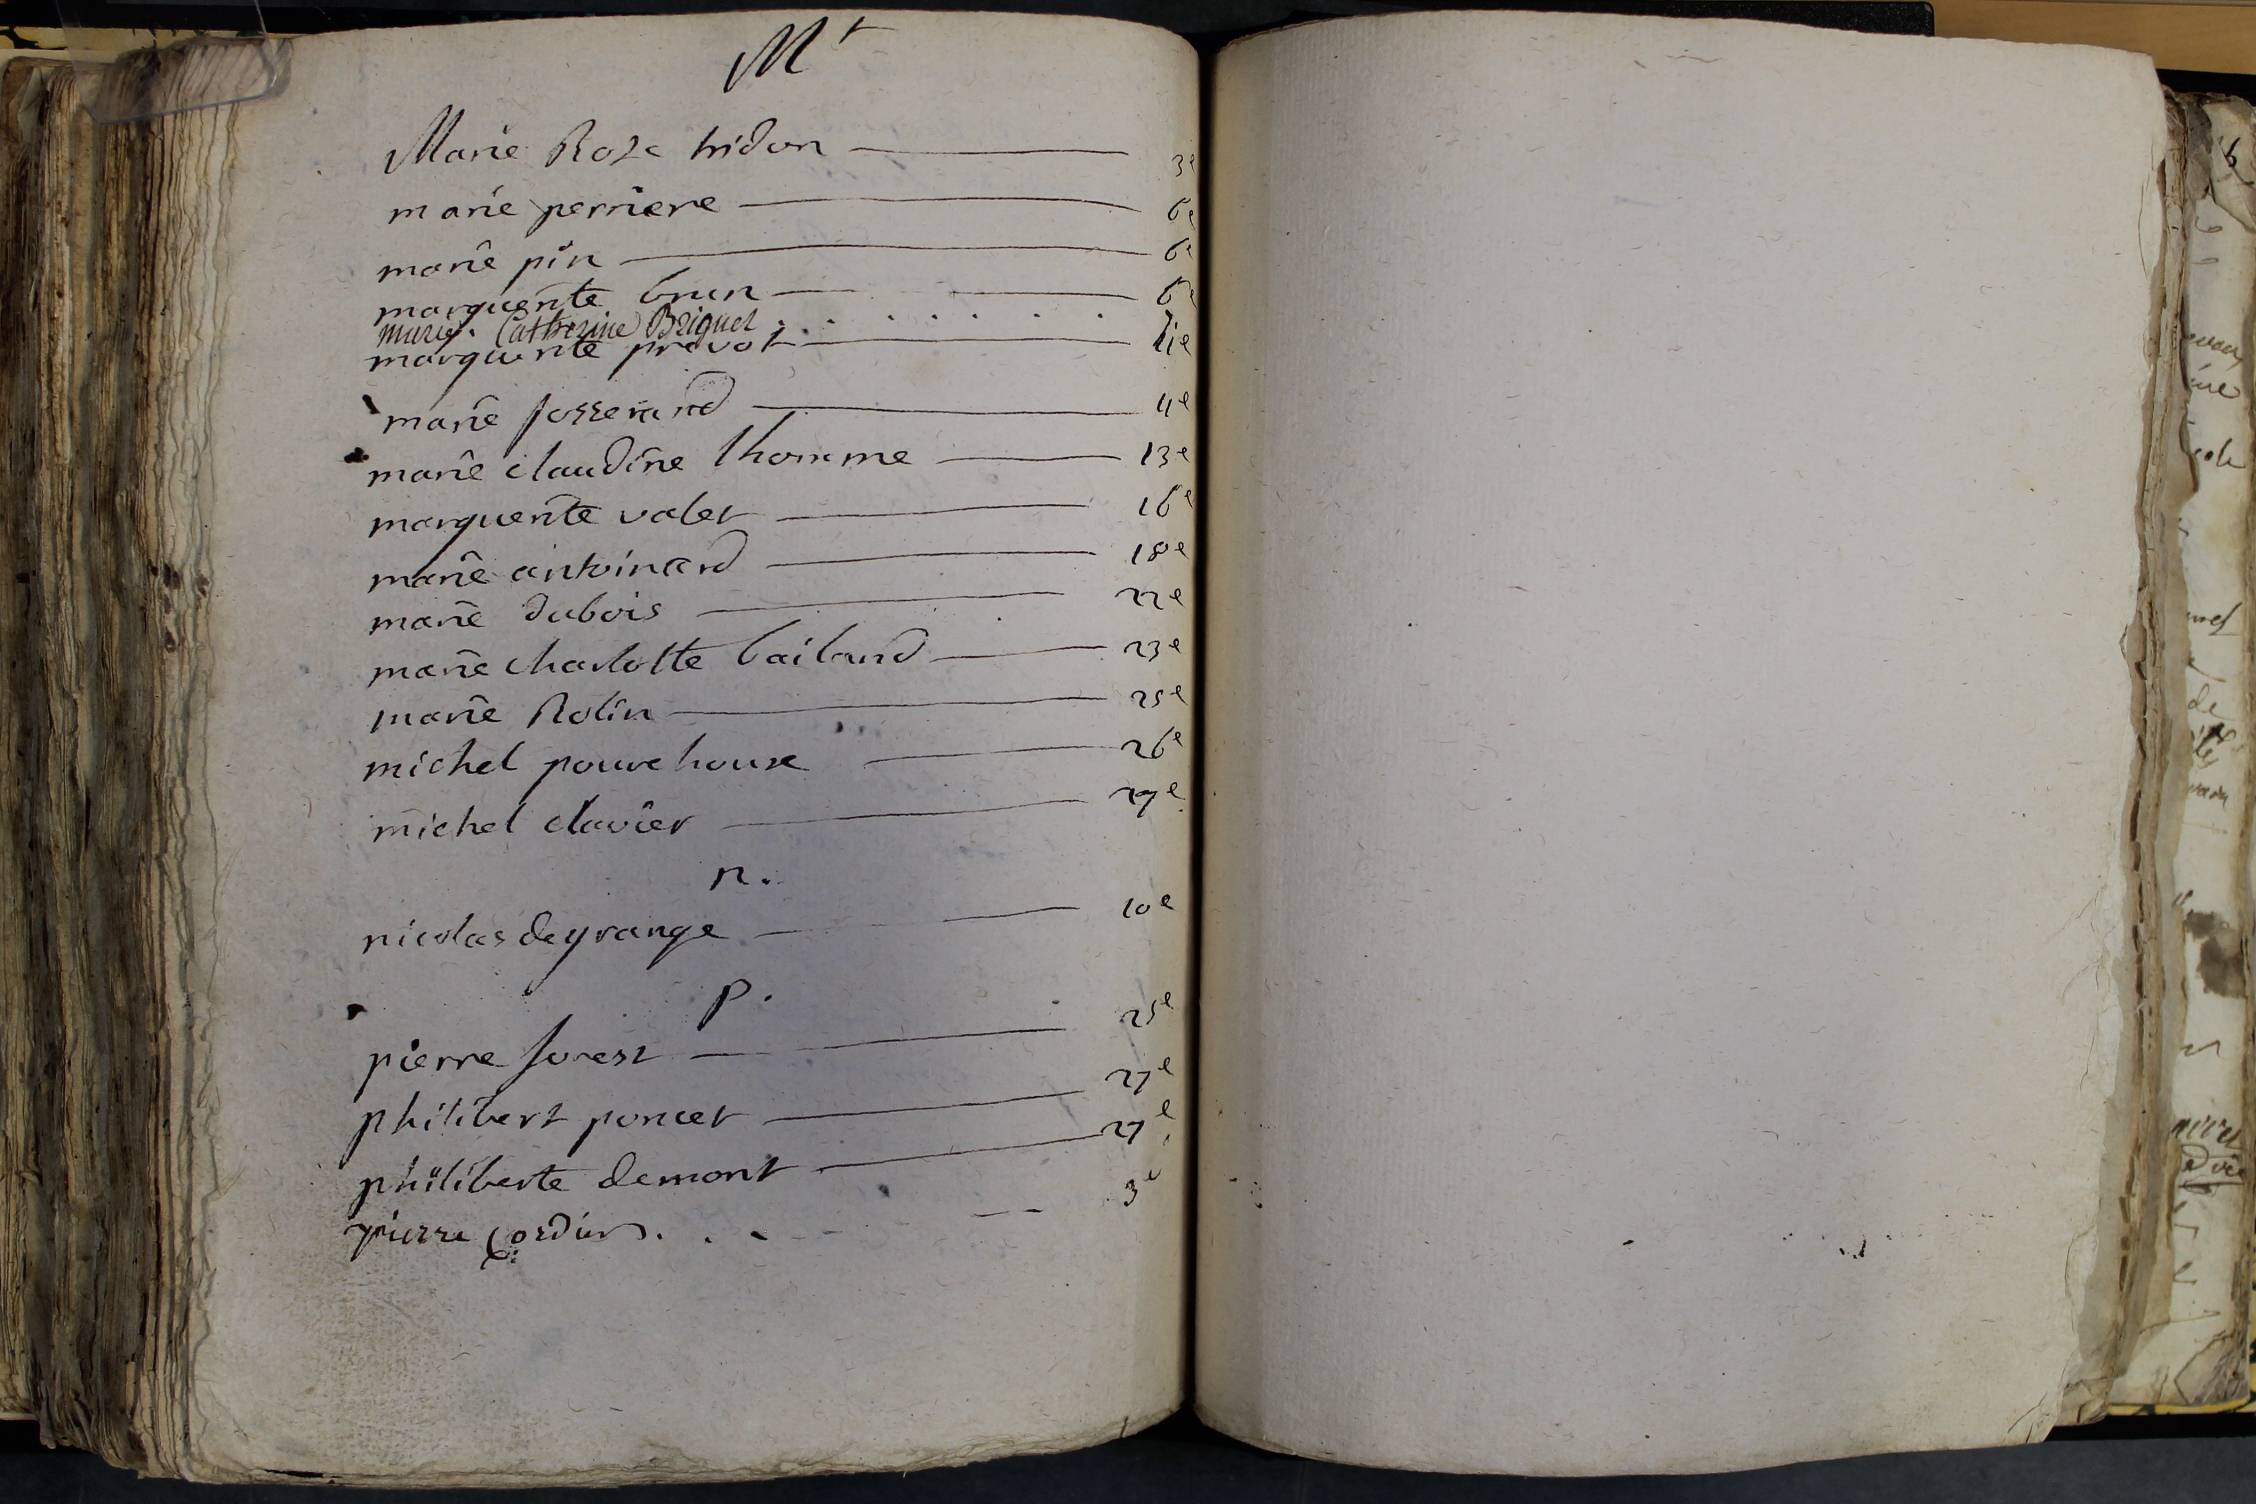 M
Marie Roze tridon 3e
marie perriere 6e
marie pin 6e
marguerite brun 6e
marie Catherine Briguet 7
marguerite prevot 11e
marie josserand 11e
marie claudine lhomme 13e
marguerite valet 16e
marie antoinard 18e
marie dubois 22e
marie charlotte bailand 23e
marie Rolin 25e
michel pouvehouse 26e
michel clavier 27e
n.
nicolas degrange 10e
p.
pierre forest 25e
philibert poncet 27e
philiberte demont 27e
pierre Cordier 3e